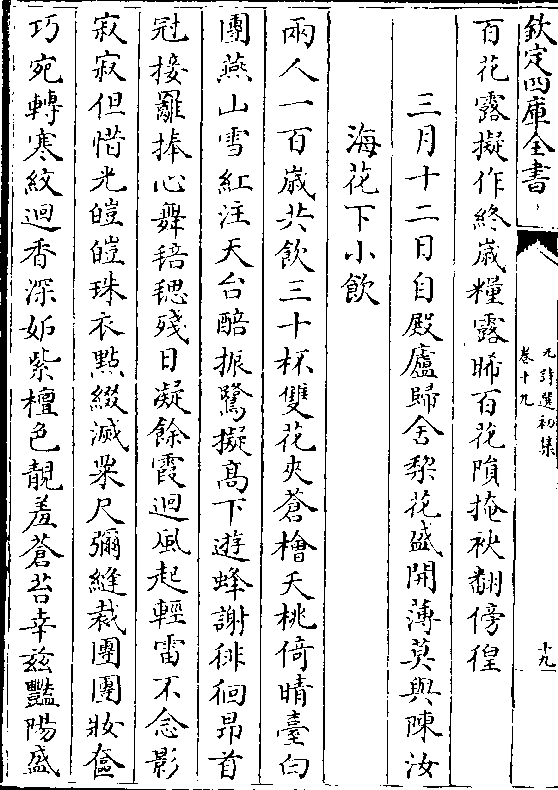 欽定四庫全書
元詩選初集
卷十九
十九
百花露擬作終歲糧露晞百花隕掩袂翻傍徨
三月十二日自殿廬歸舍梨花盛開薄莫與陳汝
海花下小飲
兩人一百歲共飲三十杯雙花夾蒼檜夭桃倚晴臺白
團燕山雪紅注天台醅振鷺擬高下遊蜂謝徘徊昂首
冠接䍦捧心舞毰毸殘日凝餘霞迴風起輕雷不念影
寂寂但惜光皚皚珠衣點綴滅眾尺彌縫裁團團妝奩
巧宛轉寒紋迴香深妬紫檀色靚羞蒼苔幸茲豔陽盛